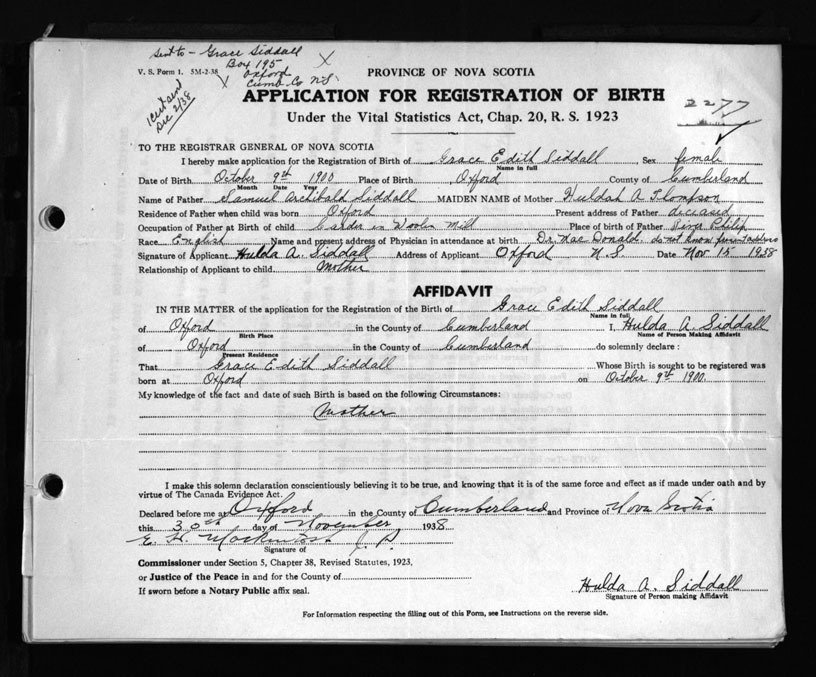 Sent to - Grace Siddall
Box 195
Oxford
Cumb. Co N.S.
V. S. Form 1. 5M-2-38
PROVINCE OF NOVA SCOTIA
Dec 2/38
APPLICATION FOR REGISTRATION OF BIRTH
2277
Under the Vital Statistics Act, Chap. 20, R. S. 1923
TO THE REGISTRAR GENERAL OF NOVA SCOTIA
I hereby make application for the Registration of Birth of Grace Edith Siddall Sex female
Name in full
Date of Birth October 9th 1900 Place of Birth Oxford County of Cumberland
Month Date Year
Name of Father Samuel Archibald Siddall MAIDEN NAME of Mother Huldah A Thompson
Residence of Father when child was born Oxford Present address of Father deceased
Occupation of Father at Birth of child Carder in Woolen Mill Place of birth of Father River Philip
Race English Name and present address of Physician in attendance at birth Dr. Mac Donald do not know present address
Signature of Applicant Hulda A. Siddall Address of Applicant Oxford N. S Date Nov 15 1938
Relationship of Applicant to child Mother
AFFIDAVIT
IN THE MATTER of the application for the Registration of the Birth of Grace Edith Siddall
Name in full
of Oxford in the County of Cumberland I, Hulda A. Siddall
Birth Place Name of Person Making Affidavit
of Oxford in the County of Cumberland do solemnly declare :
Present Residence
That Grace Edith Siddall Whose Birth is sought to be registered was
born at Oxford on October 9th 1900.
My knowledge of the fact and date of such Birth is based on the following Circumstances:
Mother
I make this solemn declaration conscientiously believing it to be true, and knowing that it is of the same force and effect as if made under oath and by
virtue of The Canada Evidence Act.
Declared before me at Oxford in the County of Cumberland and Province of Nova Scotia
this 30th day of November 1938
E. H. Mackintosh J. P.
Signature of
Commissioner under Section 5, Chapter 38, Revised Statutes, 1923,
or Justice of the Peace in and for the County of
If sworn before a Notary Public affix seal.
Hulda A. Siddall
Signature of Person making Affidavit
For Information respecting the filling out of this Form, see Instructions on the reverse side.